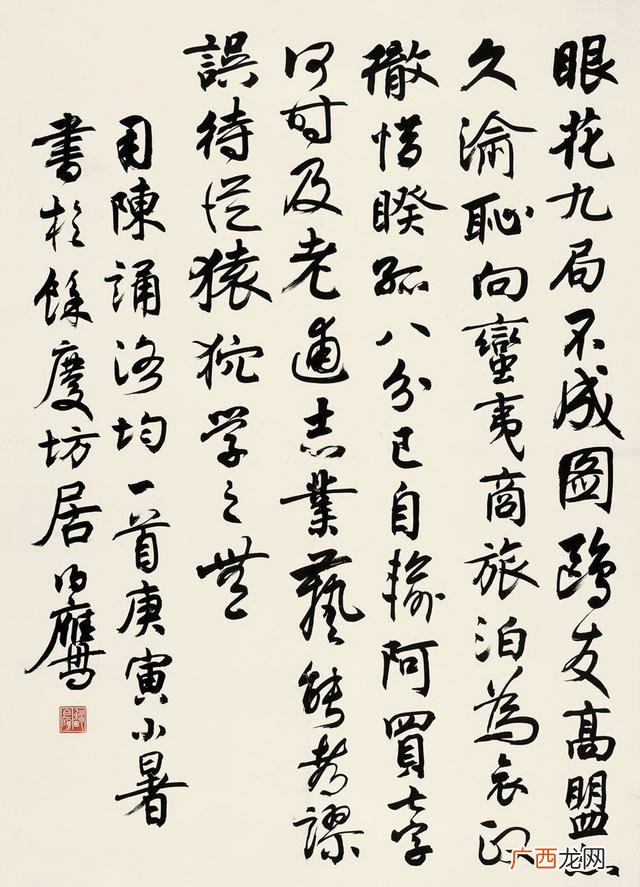 眼花九局不成圖鷗友高盟
久淪恥向蠻夷商旅泊為哀
撤惜睽孤八分已自輸阿買七字
何時及老逋志業藝能都謬
誤待從猿狖學之無
用陳誦洛均一首庚寅小暑
書於餘慶坊居伯鷹
广西龙网